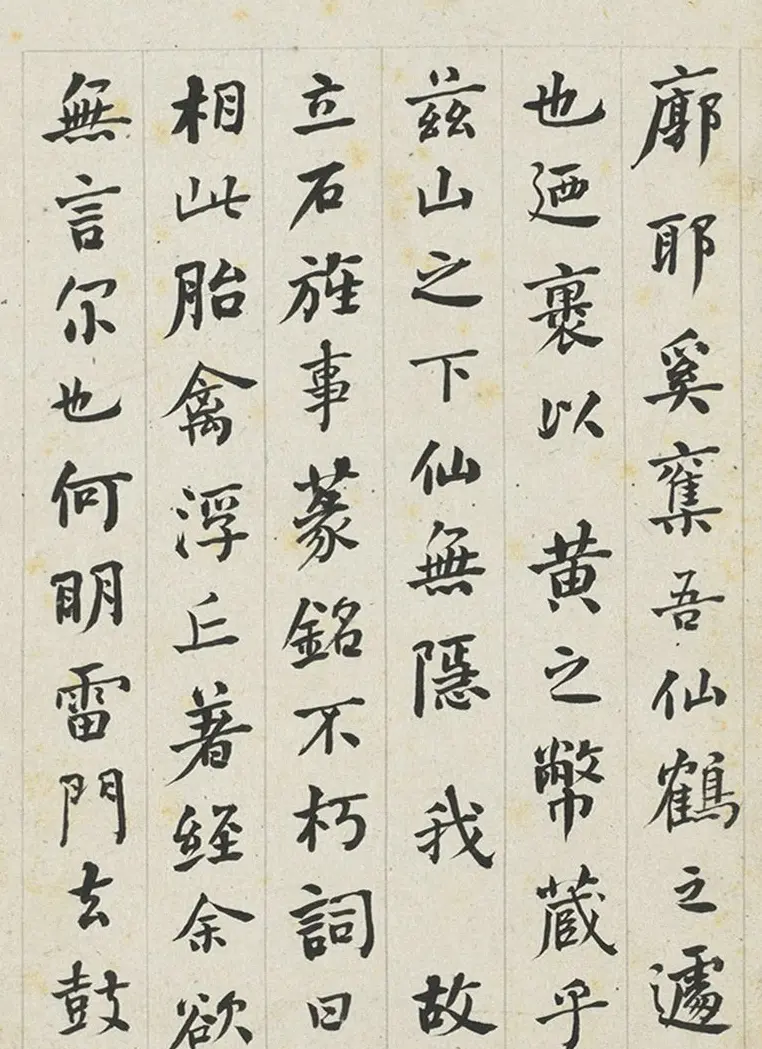 廓耶奚奪吾仙鶴之遽
也廼裹以黄之幣蔵乎
兹山之下仙無隱我故
立石旌事篆銘不朽詞曰
相此胎禽浮丘著經余欲
無言尔也何明雷門去鼓